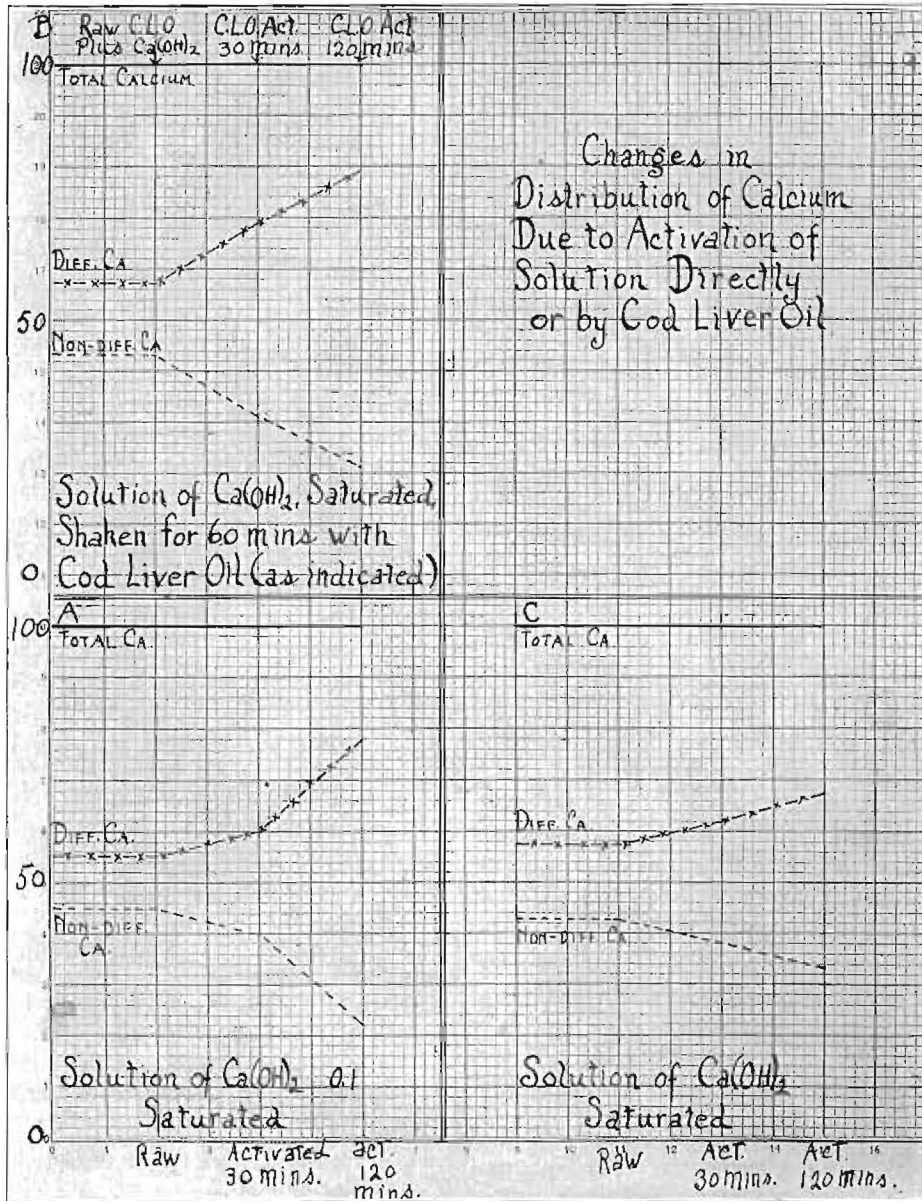 B
Raw C.L.O
Plus Ca(OH)2
C.L.O. Act.
30 mins.
C.L.O Act
120 mins.
100
TOTAL CALCIUM
DIFF. CA
50
NON-DIFF. CA
Solution of Ca(OH)2, Saturated,
Shaken for 60 mins with
Cod Liver Oil (as indicated)
0
Changes in
Distribution of Calcium
Due to Activation of
Solution Directly
or by Cod Liver Oil
A
100
TOTAL CA.
DIFF. CA.
50
NON-DIFF.
CA.
Solution of Ca(OH)2 0.1
Saturated
0
Raw
Activated
30 mins.
act.
120
mins.
C
TOTAL CA
DIFF. CA.
NON-DIFF CA.
Solution of Ca(OH)2
Saturated
10
12
14
16
Raw
Act.
30 mins.
Act.
120 mins.